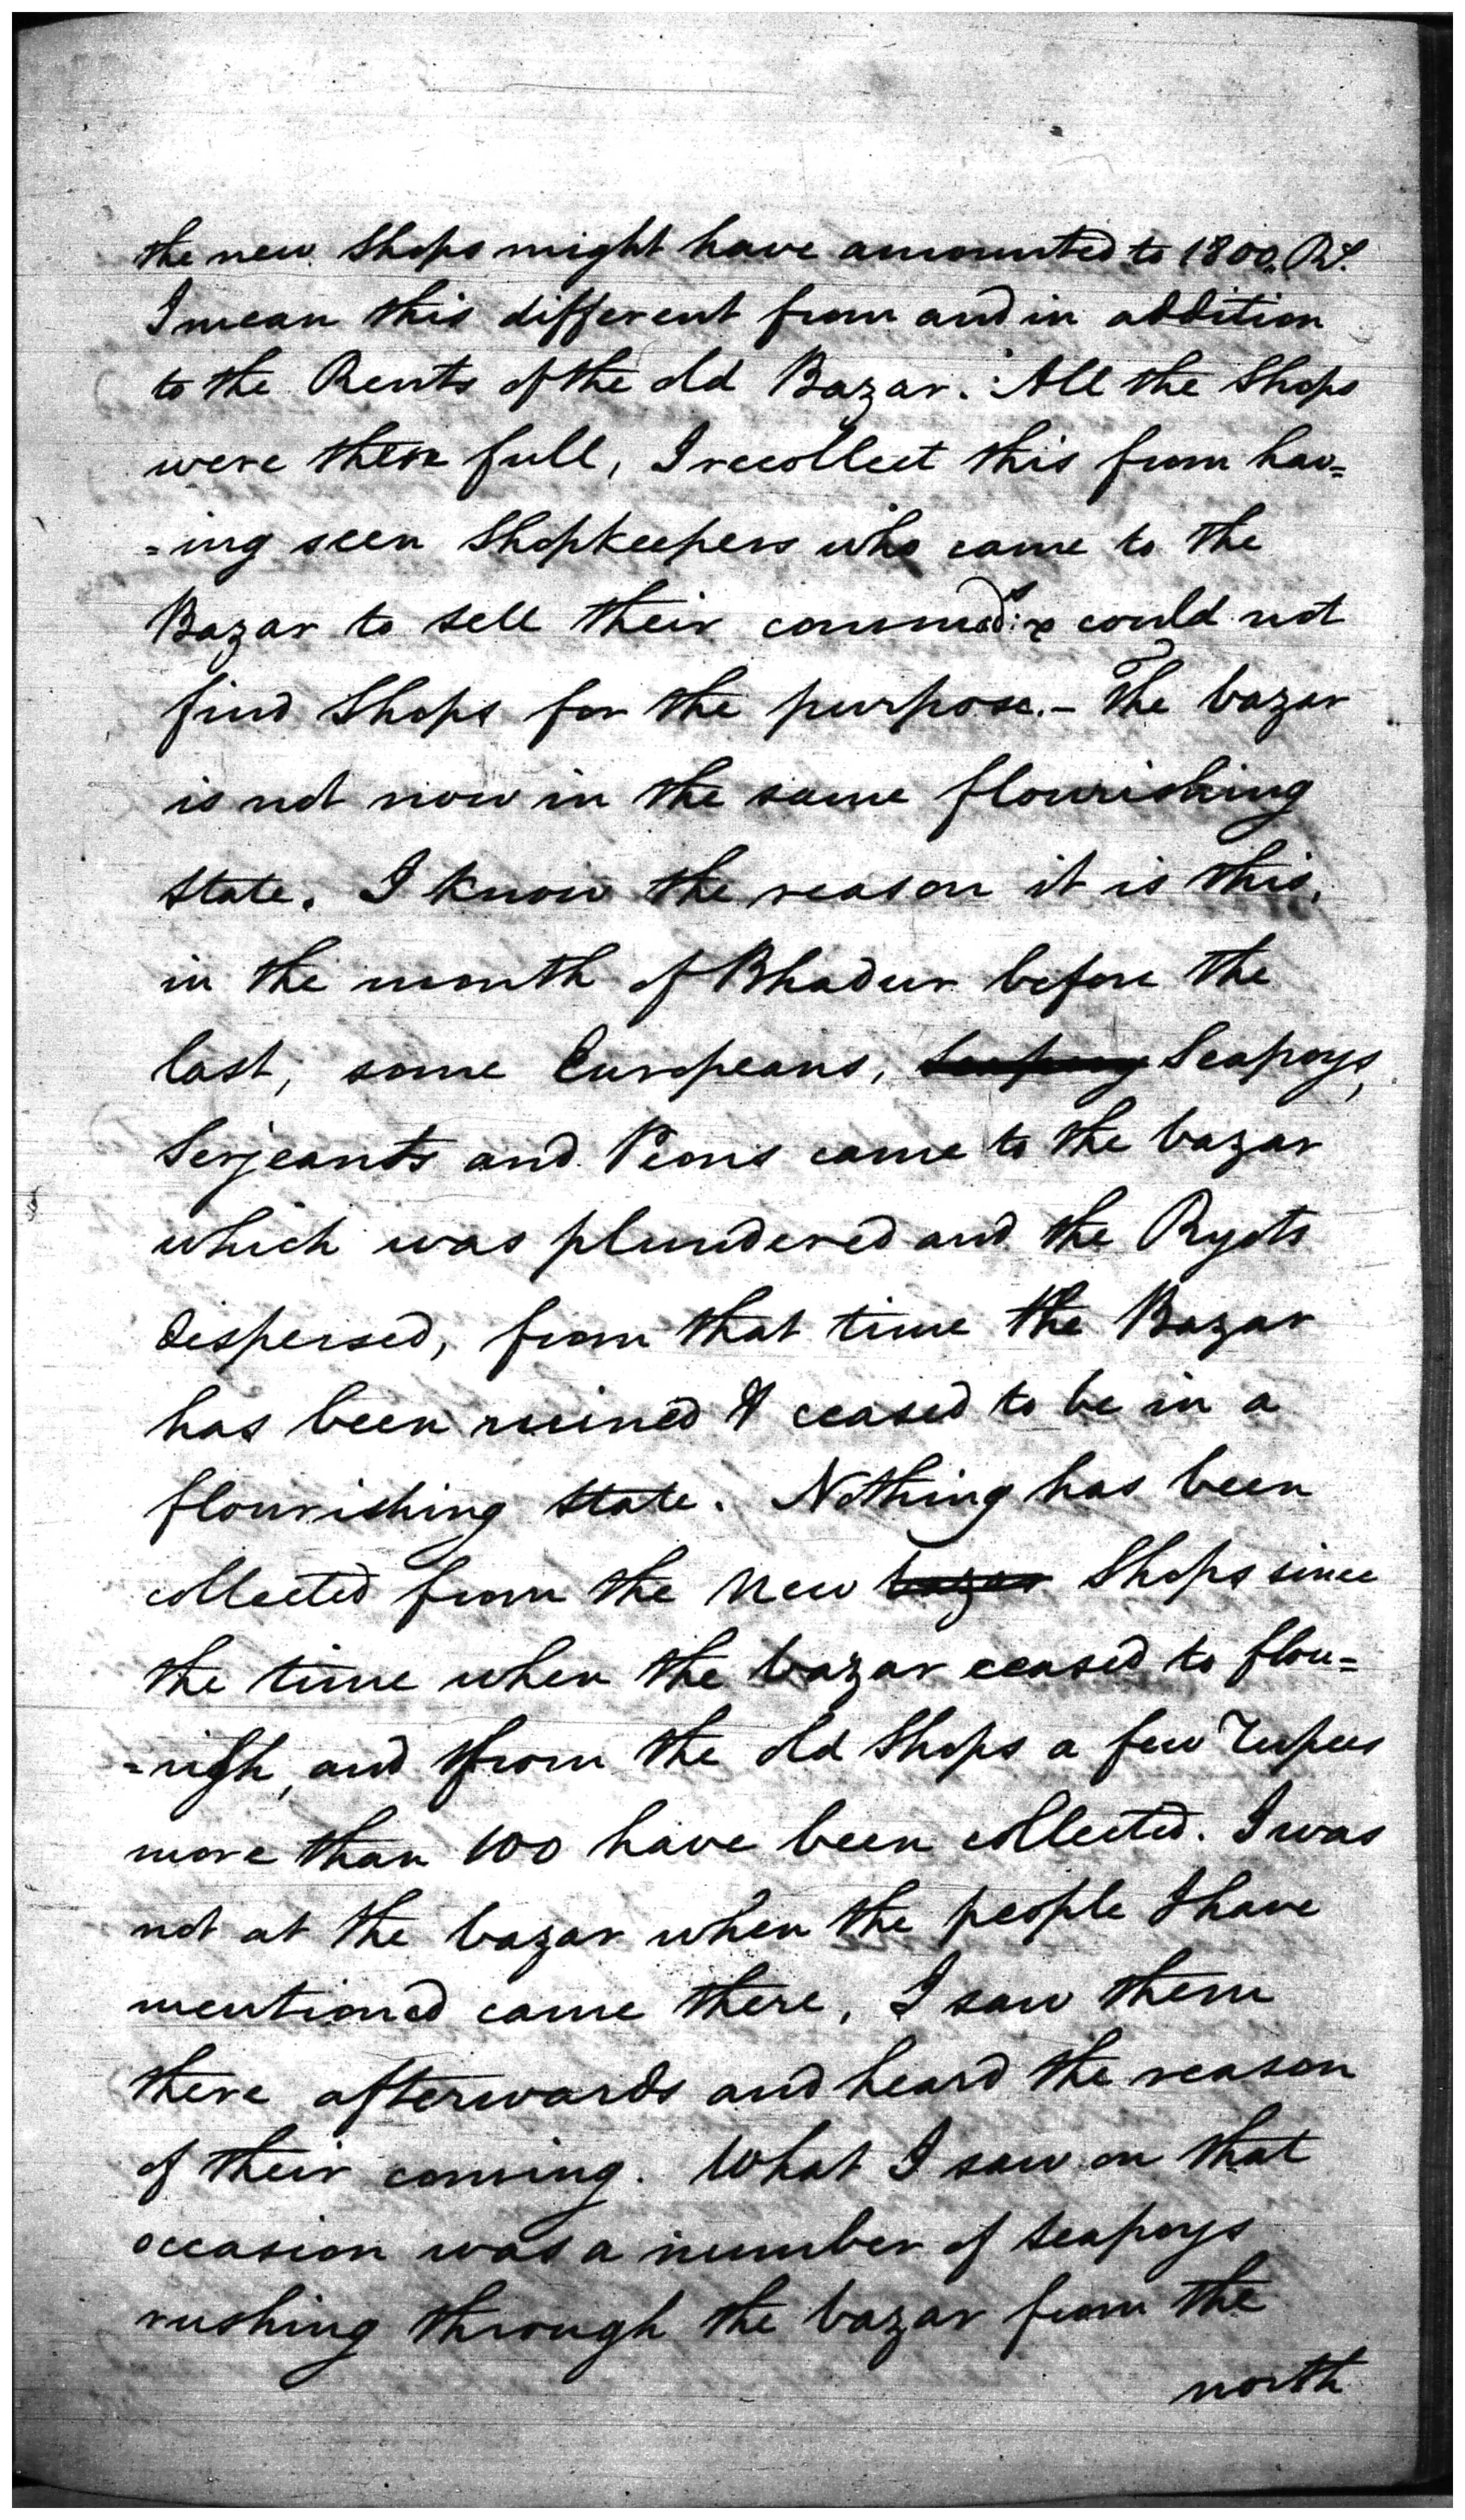 the new Shops might have amounted to 1800. Rs.
I mean this different from and in addition
to the Rents of the old Bazar. All the Shops
were then full, I recollect this from hav=
=ing seen Shopkeepers who came to the
Bazar to sell their commod:s & could not
find Shops for the purpose. - The bazar
is not now in the same flourishing
state. I know the reason it is this,
in the month of Bhadur before the
last, some Europeans, Seapoys,
Serjeants and Peons came to the bazar
which was plundered and the Ryots
dispersed, from that time the Bazar
has been ruined & ceased to be in a
flourishing state. Nothing has been
collected from the New bazar Shops since
the time when the bazar ceased to flou=
=rish, and from the old Shops a few rupees
more than 100 have been collected. I was
not at the bazar when the people I have
mentioned came there, I saw them
there afterwards and heard the reason
of their coming. What I saw on that
occasion was a number of seapoys
rushing through the bazar from the
north